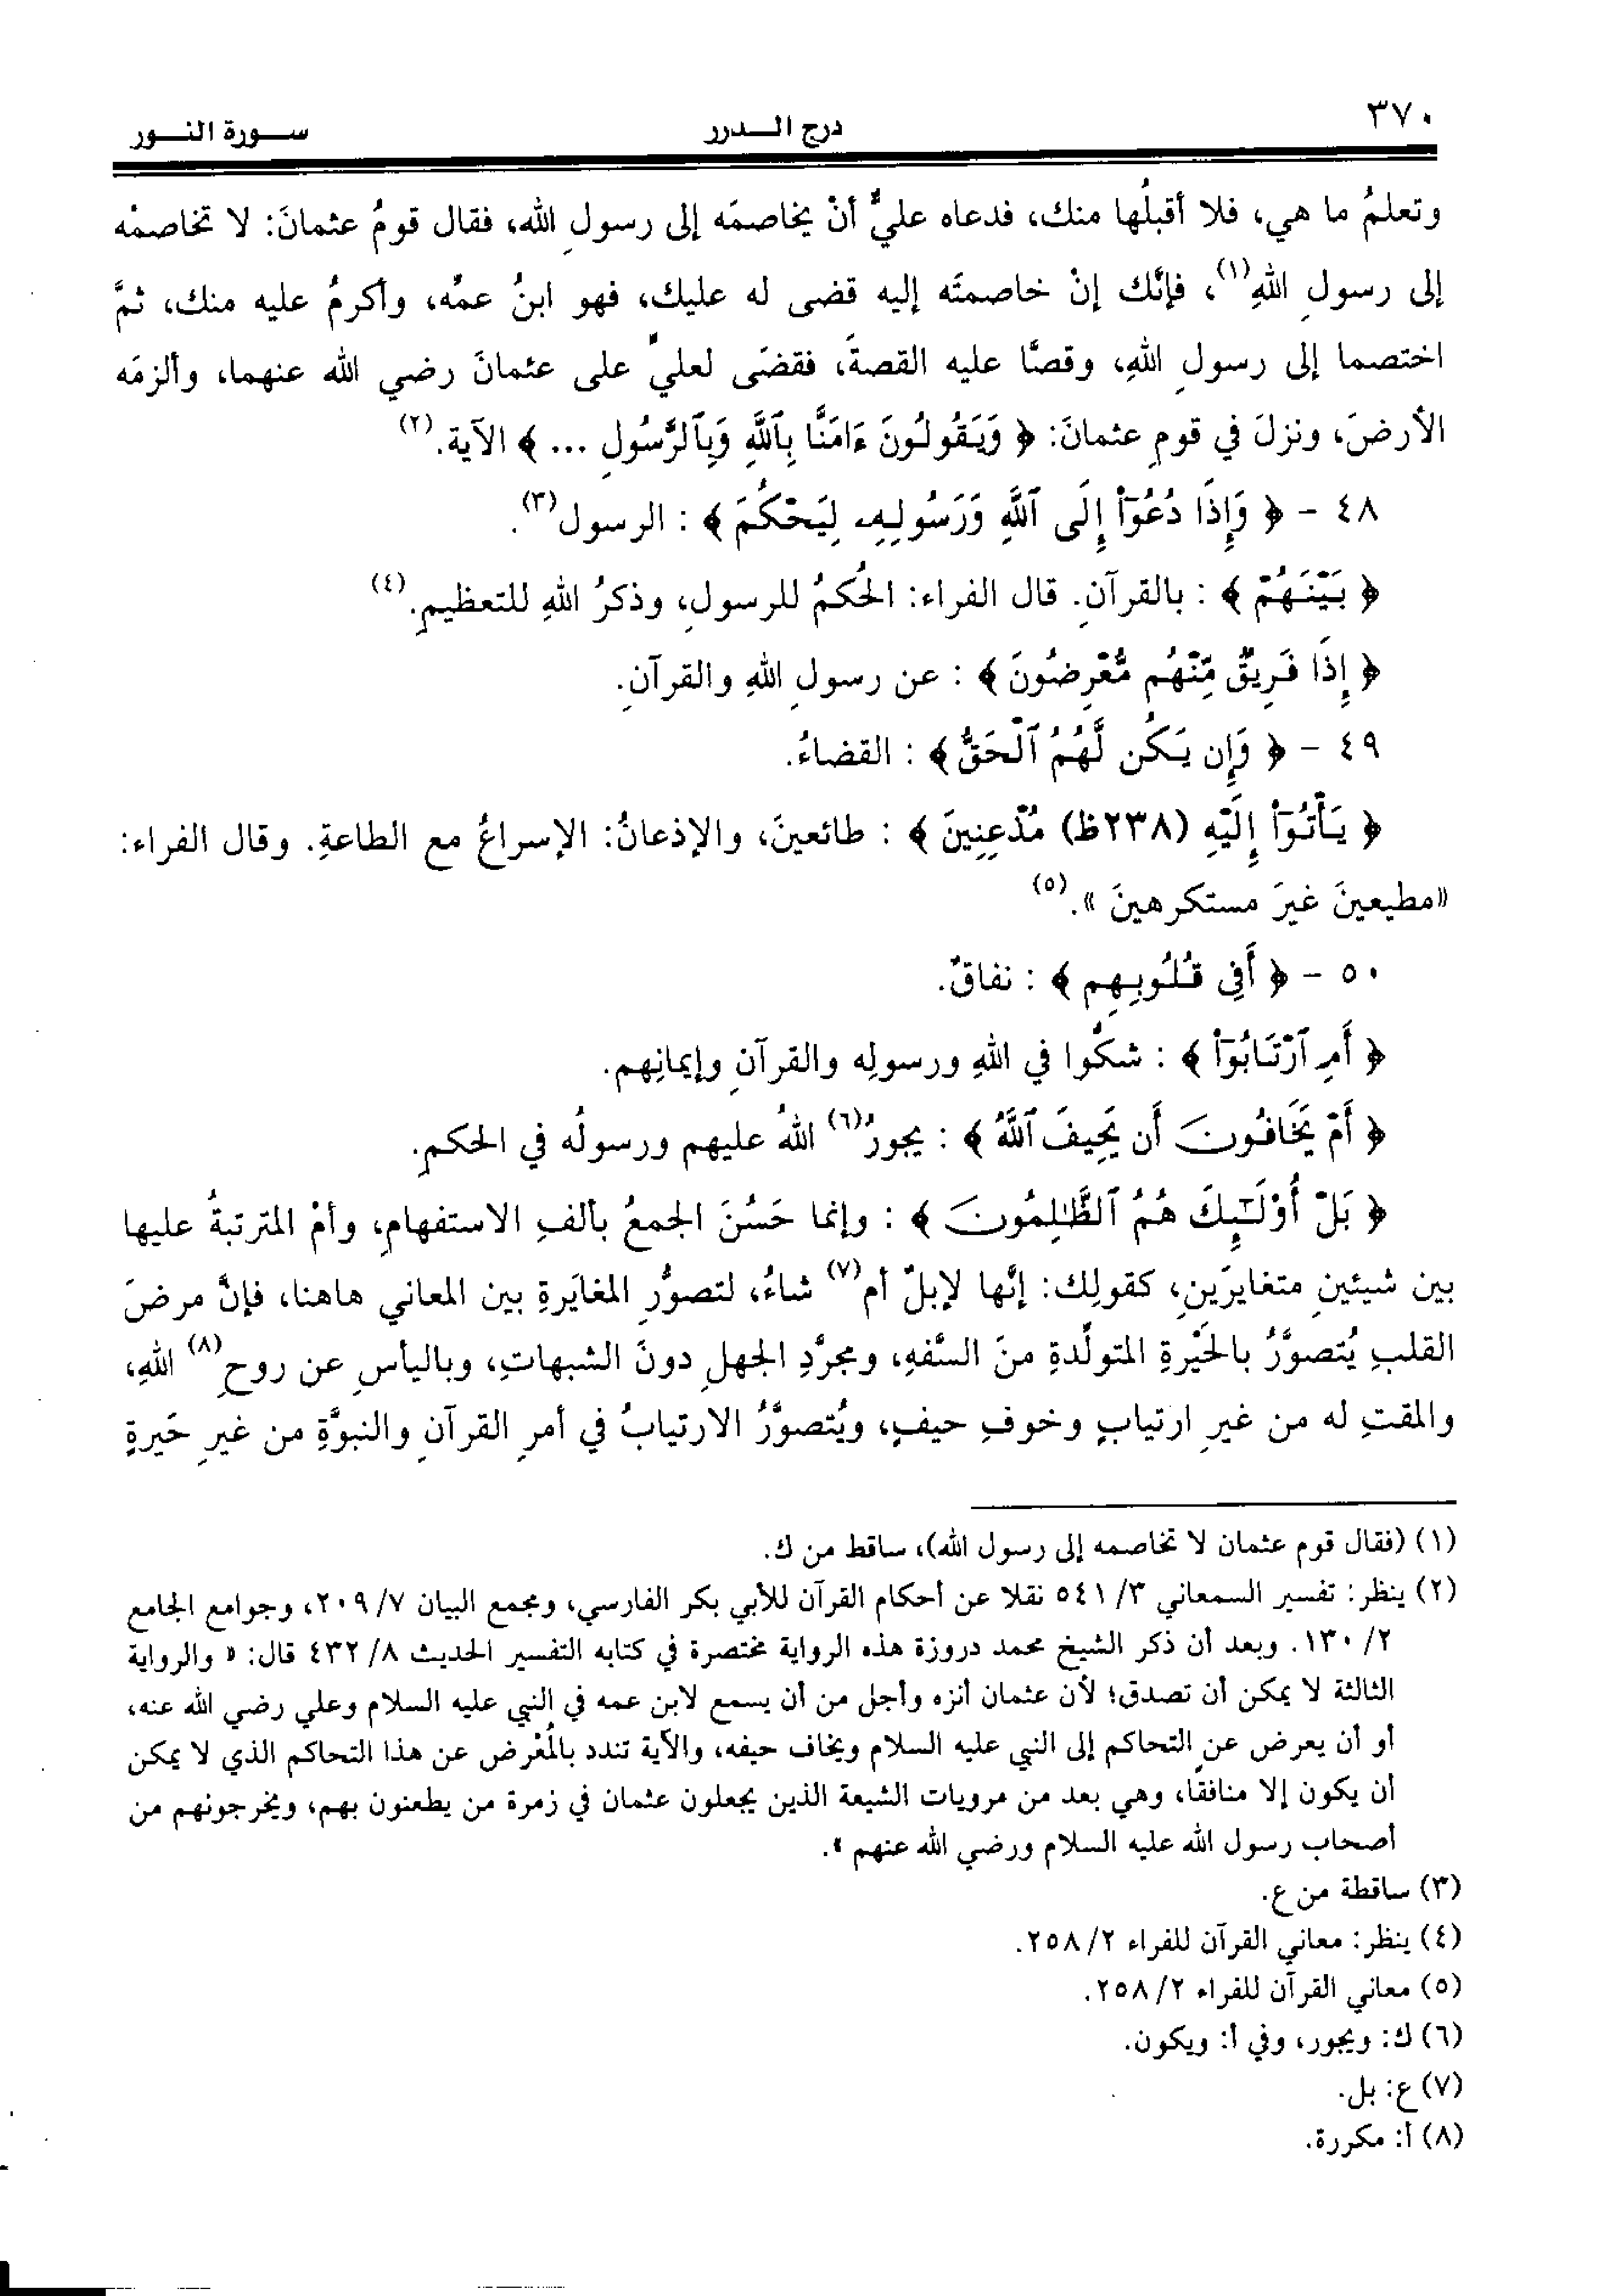 ٣٧٠ درج الـــدرر ســـورة النـــور
وتعلمُ ما هي، فلا أقبلُها منك، فدعاه عليٌّ أنْ يخاصمَه إلى رسولِ الله، فقال قومُ عثمانَ: لا تخاصمْه
إلى رسولِ اللهِ(١)، فإنَّك إنْ خاصمتَه إليه قضى له عليك، فهو ابنُ عمِّه، وأكرمُ عليه منك، ثمَّ
اختصما إلى رسولِ اللهِ، وقصَّا عليه القصةَ، فقضَى لعليٍّ على عثمانَ رضي الله عنهما، وألزمَه
الأرضَ، ونزلَ في قومِ عثمانَ: ﴿ وَيَقُولُونَ ءَامَنَّا بِٱللَّهِ وَبِٱلرَّسُولِ ... ﴾ الآية.(٢)
٤٨ - ﴿ وَإِذَا دُعُوٓا۟ إِلَى ٱللَّهِ وَرَسُولِهِۦ لِيَحْكُمَ ﴾ : الرسول(٣).
﴿ بَيْنَهُمْ ﴾ : بالقرآنِ. قال الفراء: الحُكمُ للرسولِ، وذكرُ اللهِ للتعظيمِ.(٤)
﴿ إِذَا فَرِيقٌ مِّنْهُم مُّعْرِضُونَ ﴾ : عن رسولِ اللهِ والقرآنِ.
٤٩ - ﴿ وَإِن يَكُن لَّهُمُ ٱلْحَقُّ ﴾ : القضاءُ.
﴿ يَأْتُوٓا۟ إِلَيْهِ (٢٣٨ظ) مُذْعِنِينَ ﴾ : طائعينَ، والإذعانُ: الإسراعُ مع الطاعةِ. وقال الفراء:
«مطيعينَ غيرَ مستكرهينَ ».(٥)
٥٠ - ﴿ أَفِى قُلُوبِهِم ﴾ : نفاقٌ.
﴿ أَمِ ٱرْتَابُوٓا۟ ﴾ : شكُّوا في اللهِ ورسولِه والقرآنِ وإيمانِهم.
﴿ أَمْ يَخَافُونَ أَن يَحِيفَ ٱللَّهُ ﴾ : يجورُ(٦) اللهُ عليهم ورسولُه في الحكمِ.
﴿ بَلْ أُو۟لَٰٓئِكَ هُمُ ٱلظَّٰلِمُونَ ﴾ : وإنما حَسُنَ الجمعُ بألفِ الاستفهامِ، وأمْ المترتبةُ عليها
بين شيئينِ متغايرَينِ، كقولِك: إنَّها لإبلٌ أم(٧) شاءُ، لتصوُّرِ المغايَرةِ بين المعاني هاهنا، فإنَّ مرضَ
القلبِ يُتصوَّرُ بالحَيْرةِ المتولِّدةِ منَ السَّفهِ، ومجرَّدِ الجهلِ دونَ الشبهاتِ، وباليأسِ عن روحِ(٨) اللهِ،
والمقتِ له من غيرِ ارتيابٍ وخوفِ حيفٍ، ويُتصوَّرُ الارتيابُ في أمرِ القرآنِ والنبوَّةِ من غيرِ حَيرةٍ
(١) (فقال قوم عثمان لا تخاصمه إلى رسول الله)، ساقط من ك.
(٢) ينظر: تفسير السمعاني ٣/ ٥٤١ نقلا عن أحكام القرآن للأبي بكر الفارسي، ومجمع البيان ٧/ ٢٠٩، وجوامع الجامع
٢/ ١٣٠. وبعد أن ذكر الشيخ محمد دروزة هذه الرواية مختصرة في كتابه التفسير الحديث ٨/ ٤٣٢ قال: « والرواية
الثالثة لا يمكن أن تصدق؛ لأن عثمان أنزه وأجل من أن يسمع لابن عمه في النبي عليه السلام وعلي رضي الله عنه،
أو أن يعرض عن التحاكم إلى النبي عليه السلام ويخاف حيفه، والآية تندد بالمُعْرض عن هذا التحاكم الذي لا يمكن
أن يكون إلا منافقًا، وهي بعد من مرويات الشيعة الذين يجعلون عثمان في زمرة من يطعنون بهم، ويخرجونهم من
أصحاب رسول الله عليه السلام ورضي الله عنهم ».
(٣) ساقطة من ع.
(٤) ينظر: معاني القرآن للفراء ٢/ ٢٥٨.
(٥) معاني القرآن للفراء ٢/ ٢٥٨.
(٦) ك: ويجور، وفي أ: ويكون.
(٧) ع: بل.
(٨) أ: مكررة.